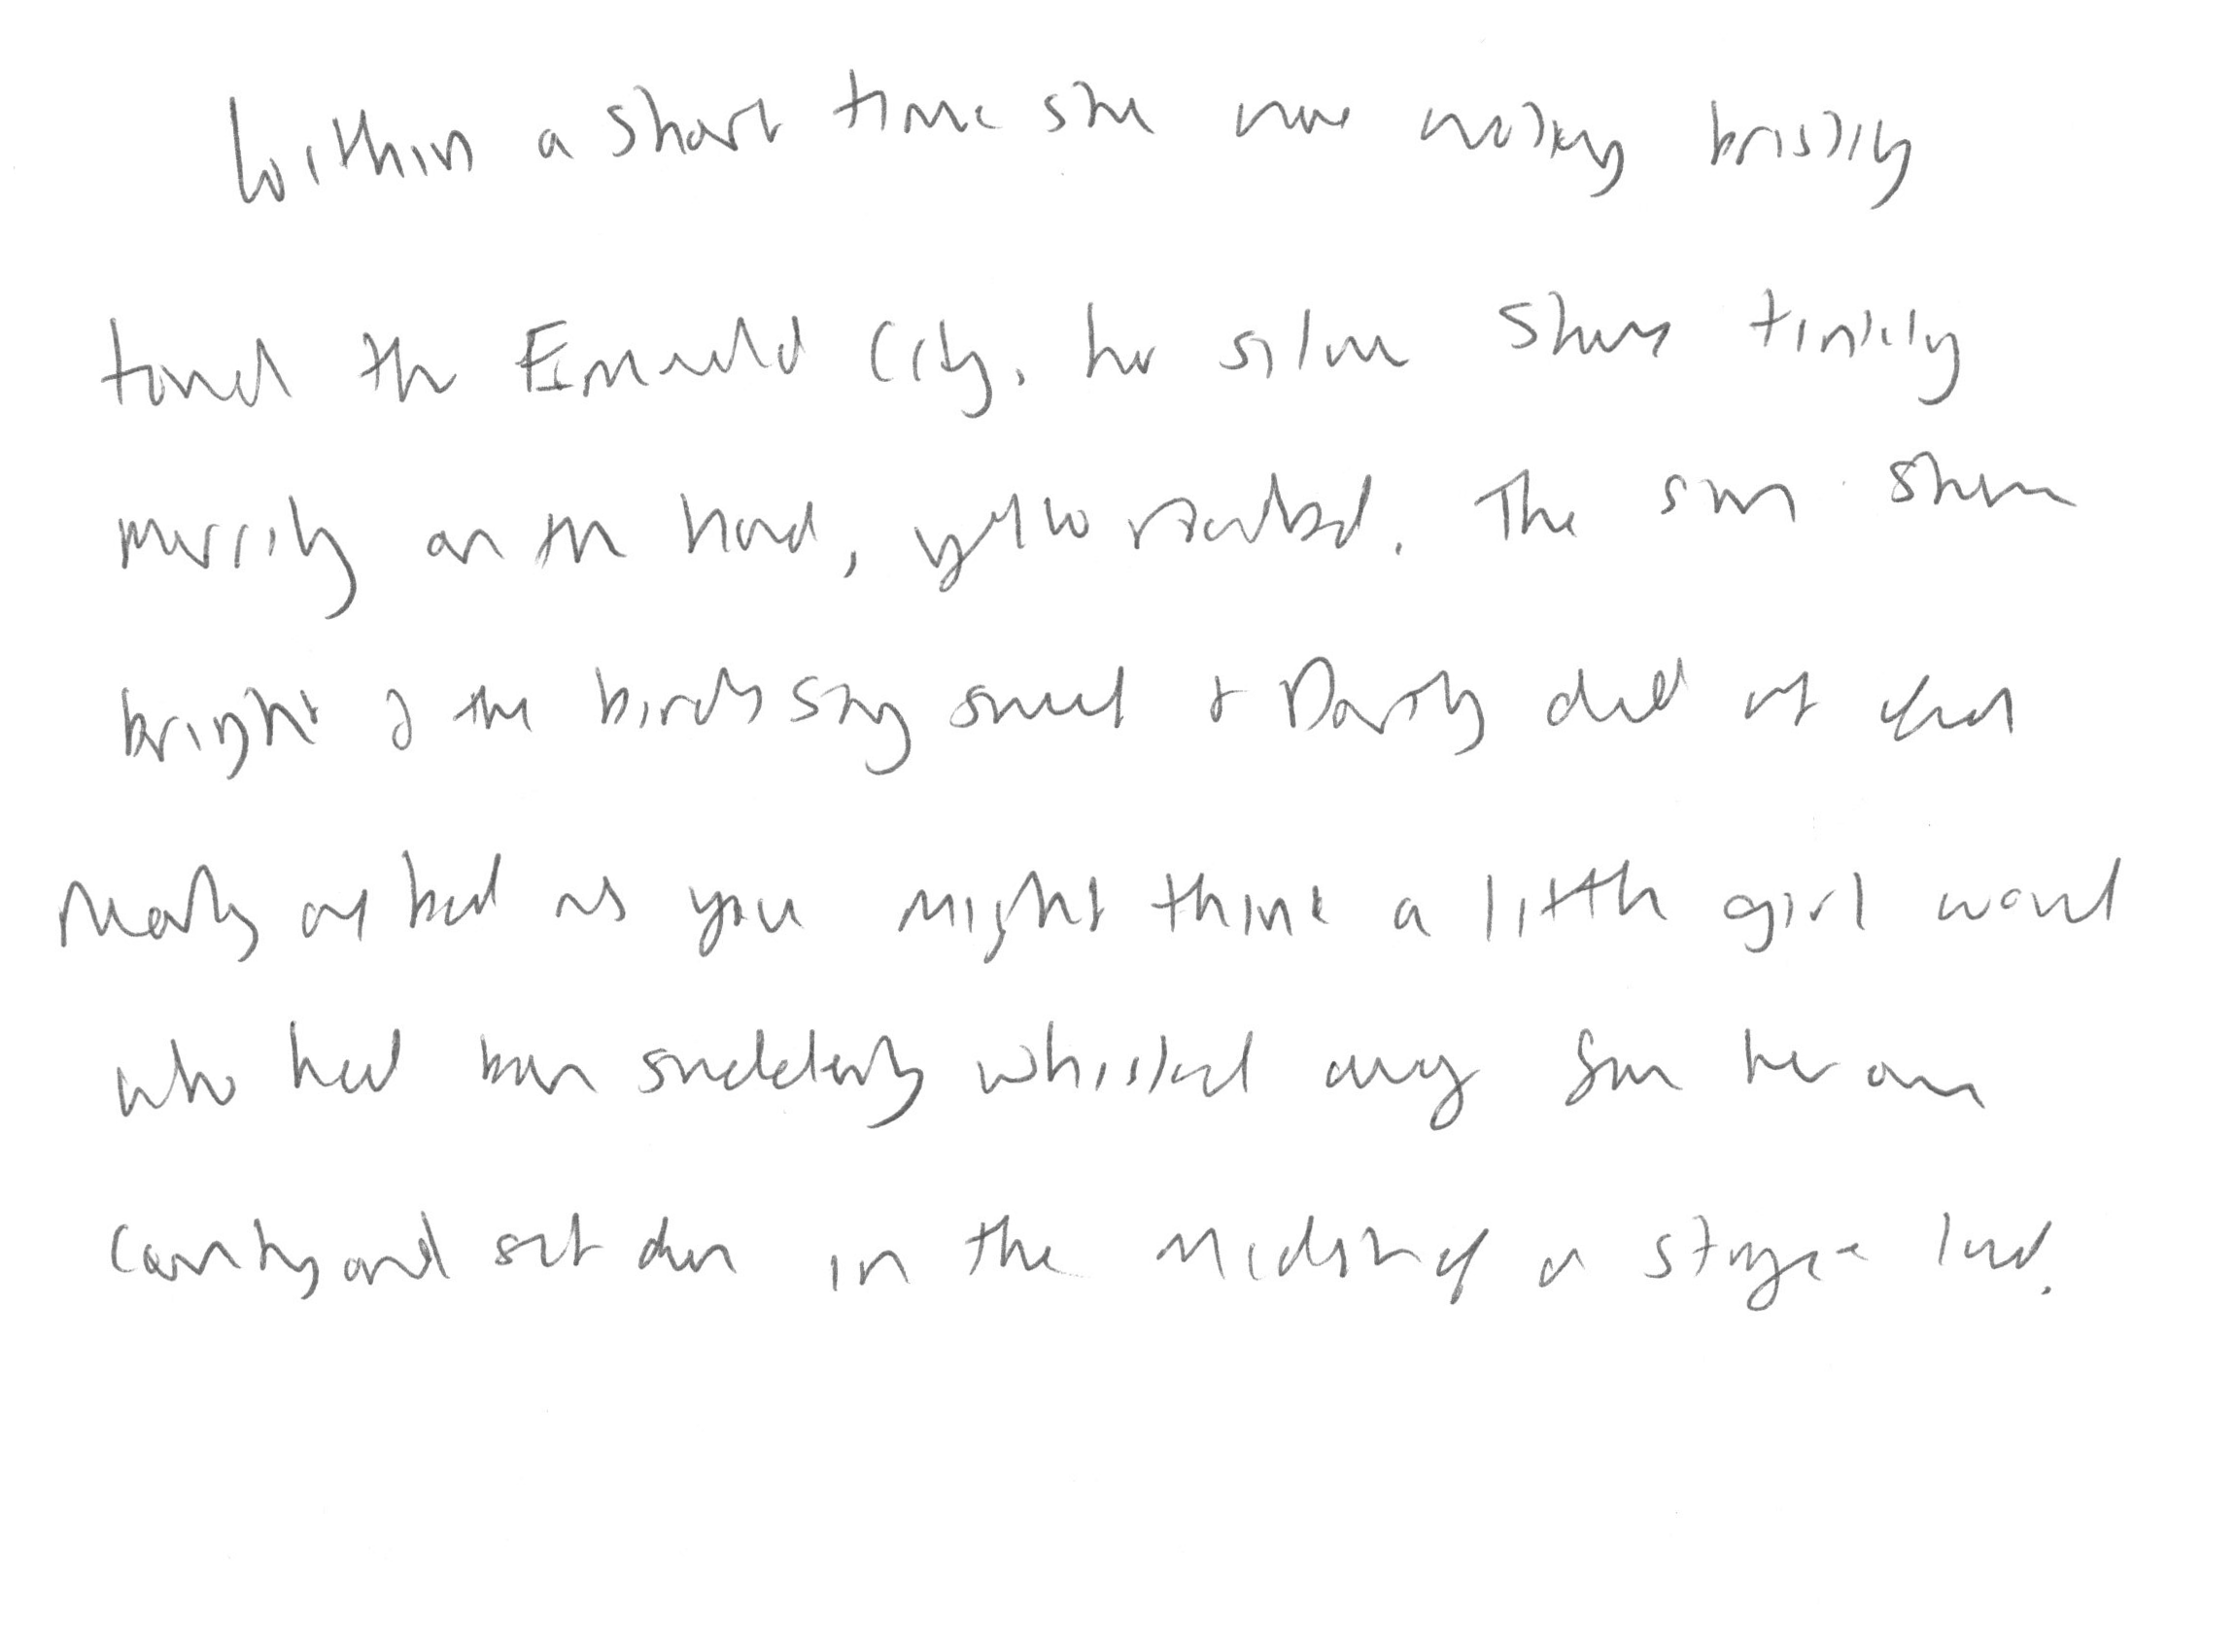 Within a short time she was walking briskly
toward the Emerald City, her silver shoes tinkling
merrily on the hard, yellow roadbed. The sun shone
bright & the birds sang sweet & Dorothy did not feel
nearly as bad as you might think a little girl would
who had been suddenly whisked away from her own
country and set down in the midst of a strange land.